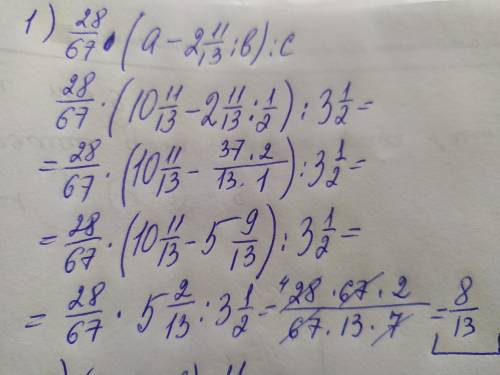 1) 28/67 · (a - 2 11/13 : b) : c
28/67 · (10 11/13 - 2 11/13 : 1/2) : 3 1/2 =
= 28/67 · (10 11/13 - 37 · 2/13 · 1) : 3 1/2 =
= 28/67 · (10 11/13 - 5 9/13) : 3 1/2 =
= 28/67 · 5 2/13 : 3 1/2 = ⁴28 · 67 · 2/67 · 13 · 7 = 8/13